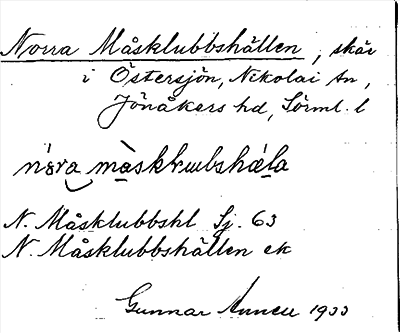 Norra Måsklubbshällen, skär
i Östersjön, Nikolai sn,
Jönåkers hd, Sörml. l
N. Måsklubbshl Sj. 63
N. Måsklubbshällen ek
Gunnar 1933